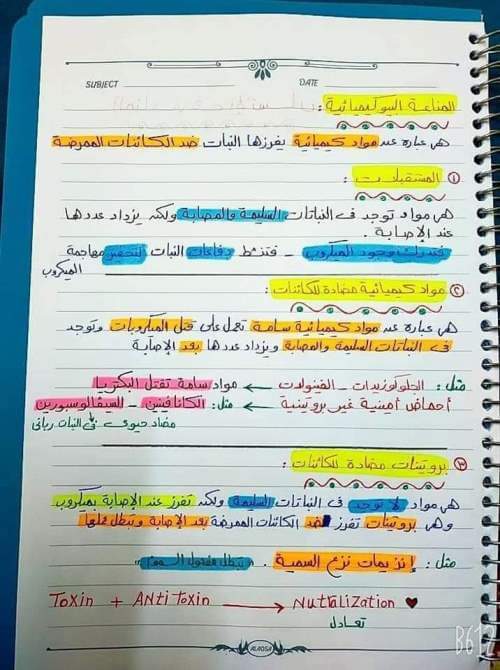 SUBJECT DATE
المناعة البيوكيميائية :
هى عبارة عن مواد كيميائية يفرزها النبات ضد الكائنات الممرضة
① المستقبلات :
هى مواد توجد فى النباتات السليمة والمصابة ولكن يزداد عددها
عند الإصابة .
تدرك وجود الميكروب - فتنشط دفاعات النبات لتحفيز مهاجمة
الميكروب
② مواد كيميائية مضادة للكائنات :
هى عبارة عن مواد كيميائية سامة تعمل على قتل الميكروبات وتوجد
فى النباتات السليمة والمصابة ويزداد عددها بعد الإصابة
مثل : الجلوكوزيدات - الفينولات ← مواد سامة تقتل البكتريا
أحماض أمينية غير بروتينية ← مثل : الكانافنين - السيفالوسبورين
مضاد حيوى فى النبات ربانى
③ بروتينات مضادة للكائنات :
هى مواد لا توجد فى النباتات السليمة ولكن تفرز عند الإصابة بميكروب
وهى بروتينات تفرز ضد الكائنات الممرضة بعد الإصابة وتبطل عملها
مثل : إنزيمات نزع السمية . "تبطل مفعول السموم"
Toxin + ANtiToxin → NuTRalizaTion ♥
تعادل
ALAQSA
B612